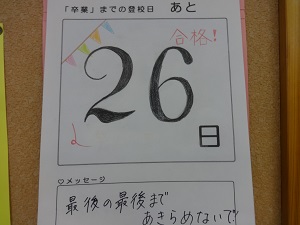 「卒業」までの登校日 あと
合格!
26
日
♡メッセージ
最後の最後まで
あきらめないで!